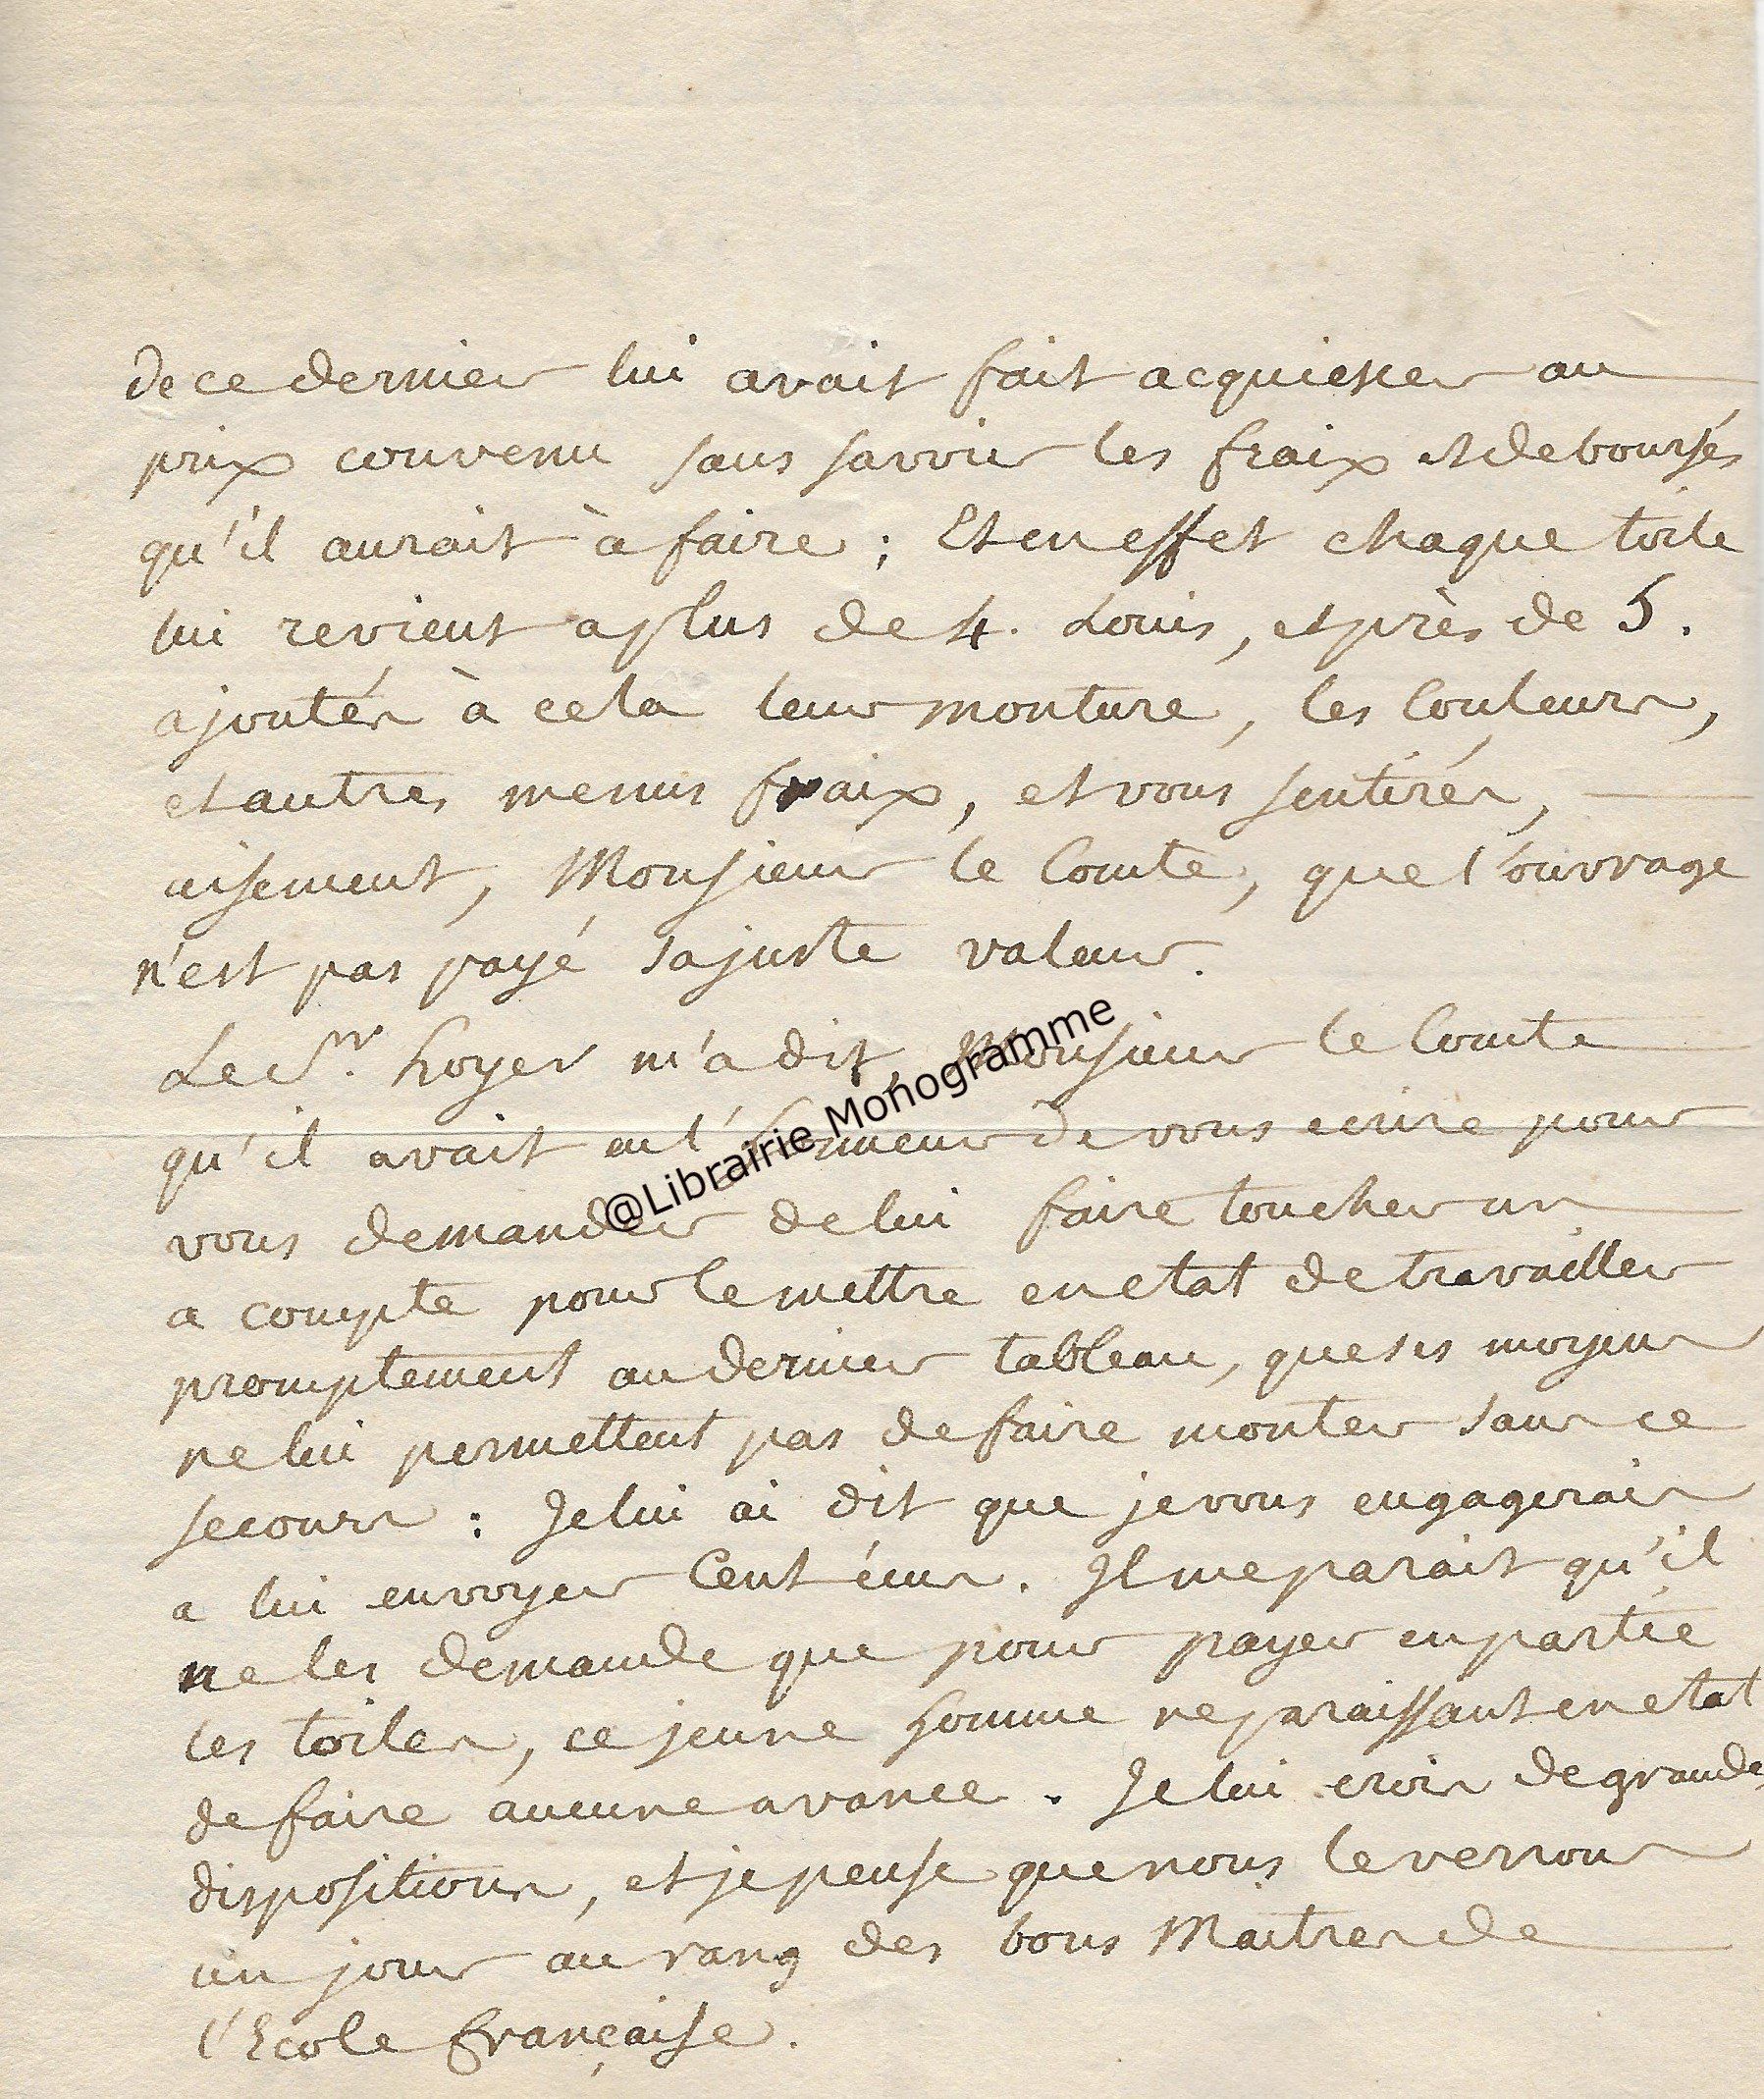 de ce dernier lui avait fait acquiescer au
prix convenu sans savoir les fraix et deboursés
qu'il aurait à faire ; Et en effet chaque toile
lui revient a plus de 4. Louis, et près de 5.
ajoutés à cela leur monture, les Couleurs,
et autres menus fraix, et vous sentirés,
aisement, Monsieur le Comte, que l'ouvrage
n'est pas payé sa juste valeur.
Le Sr. hoyer m'a dit, Monsieur le Comte
qu'il avait eu l'honneur de vous ecrire pour
vous demander de lui faire toucher un
a compte pour le mettre en etat de travailler
promptement au dernier tableau, que ses moyens
ne lui permettent pas de faire monter sans ce
secours : Je lui ai dit que je vous engagerais
a lui envoyer Cent écus. Il me parait qu'il
ne les demande que pour payer en partie
les toiles, ce jeune homme ne paraissant en etat
de faire aucune avance. Je lui crois de grande
dispositions, et je pense que nous le verrons
un jour au rang des bons Maitres de
l'Ecole française.
@Librairie Monogramme